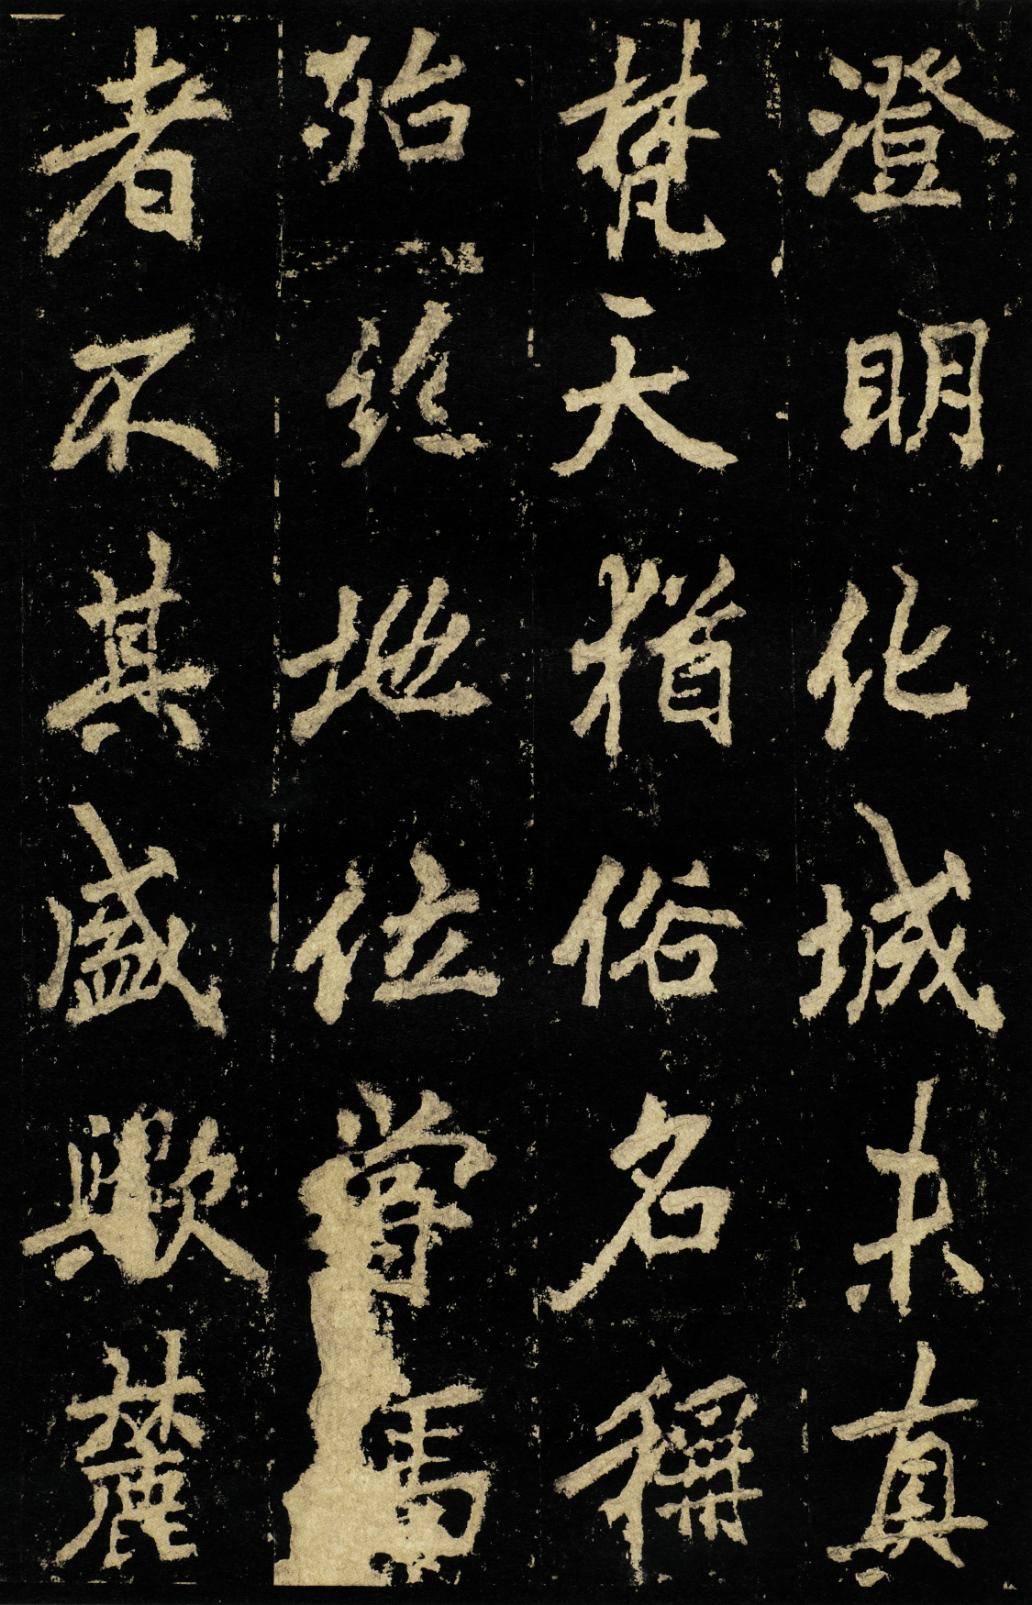 澄明化城未真
梵天猶俗名稱
殆絕地位嘗
者不其盛歟麓